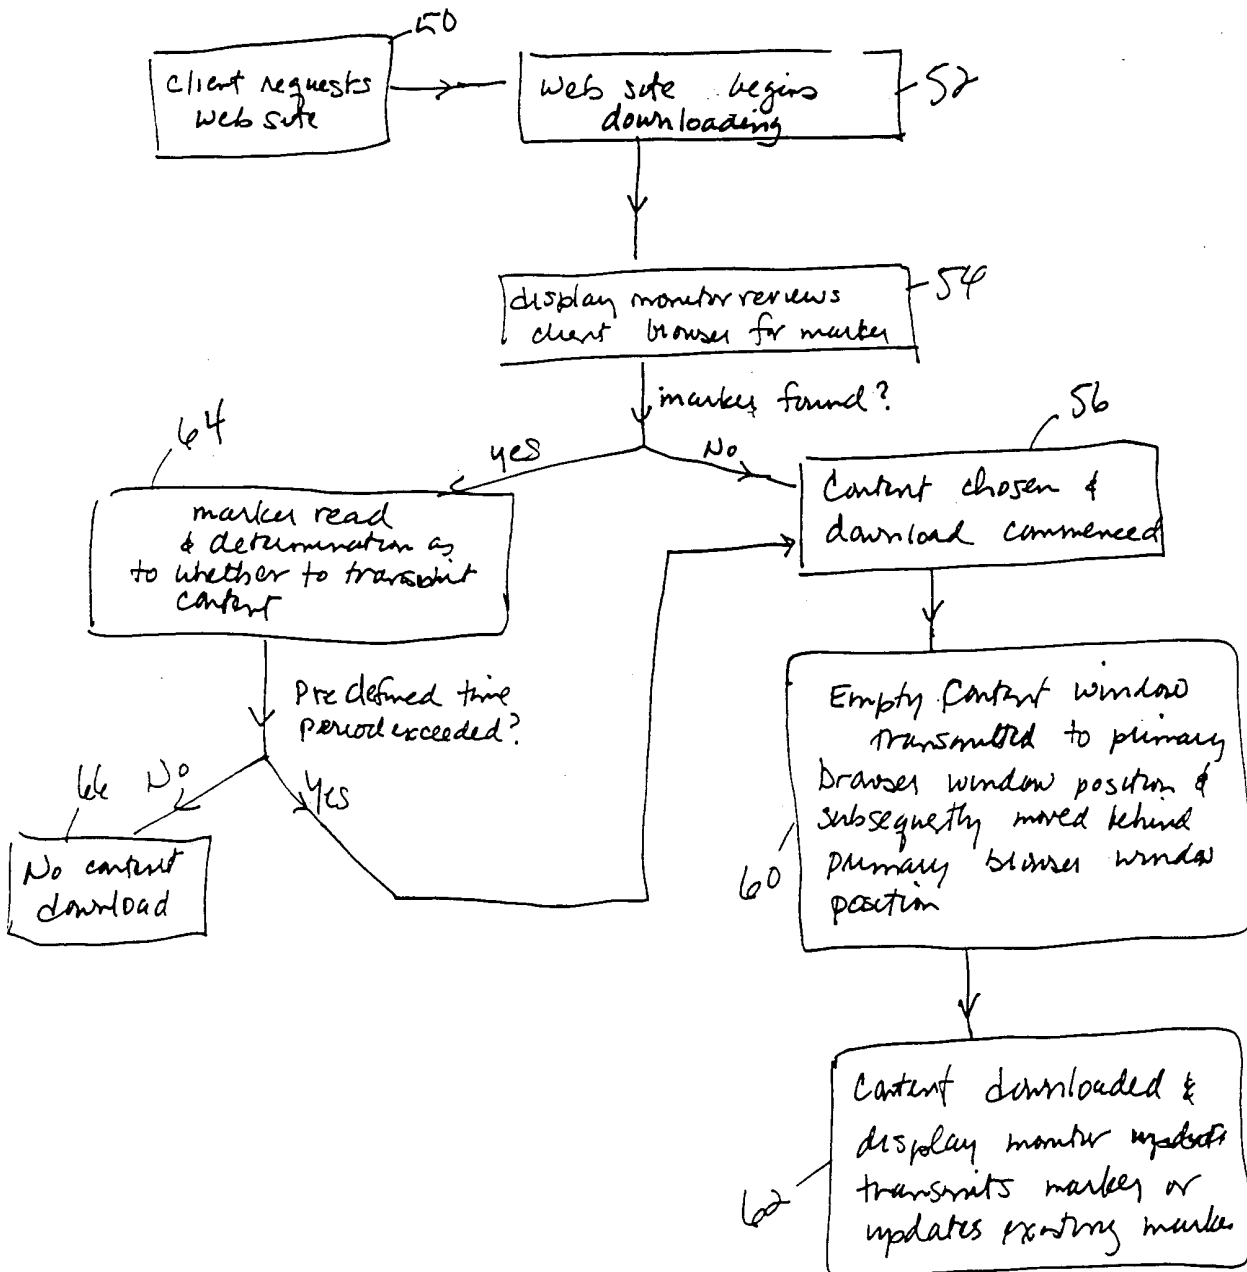 50
client requests
web site
web site begins
downloading
52
display monitor reviews
client browser for marker
54
marker found?
yes
No
64
marker read
& determination as
to whether to transmit
content
56
Content chosen &
download commenced
Predefined time
period exceeded?
No
Yes
66
No content
download
Empty Content window
transmitted to primary
browser window position &
subsequently moved behind
primary browser window
position
60
Content downloaded &
display monitor
transmits marker or
updates existing marker
62